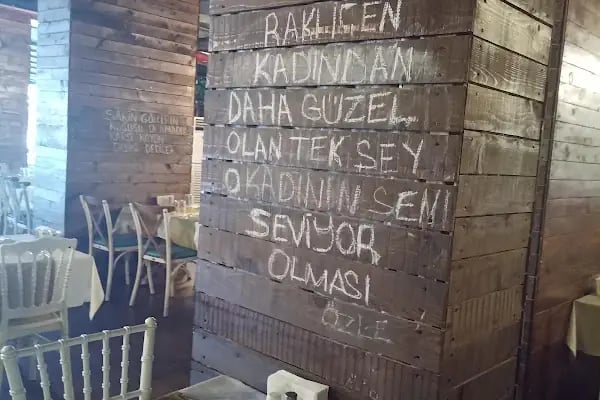 RAKI İÇEN
KADINDAN
DAHA GÜZEL
OLAN TEK ŞEY
O KADININ SENİ
SEVİYOR
OLMASI
ÖZLE
SAKIN